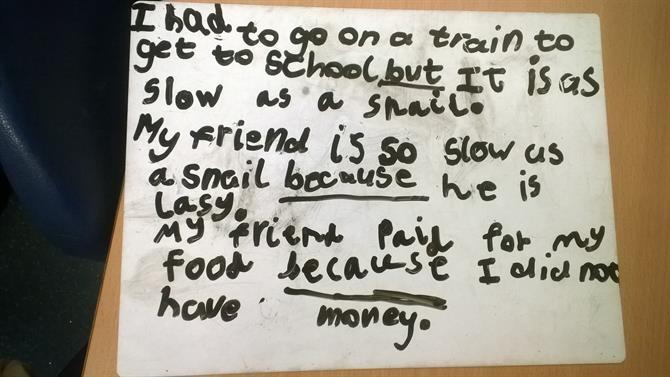 I had to go on a train to
get to school but It is as
slow as a snail.
My friend is so slow as
a snail because he is
lasy.
My friend Paid for my
food because I did not
have money.